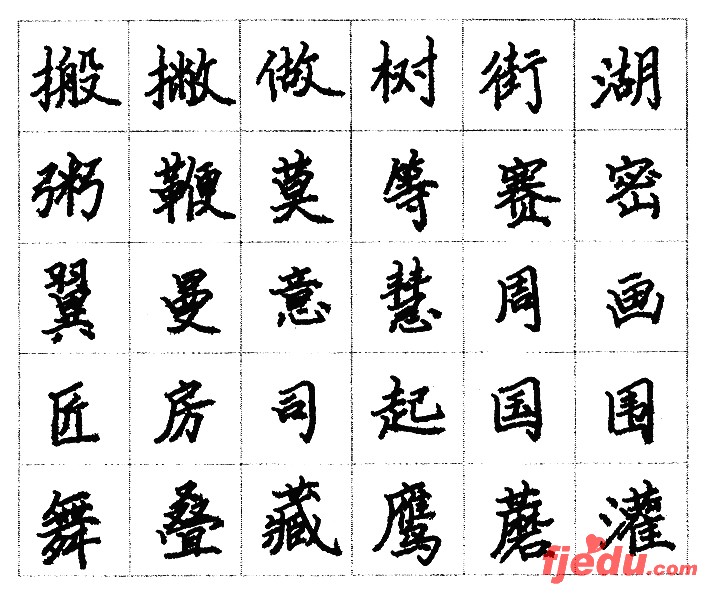 搬撇做树街湖
粥鞭莫等赛密
翼曼意慧周画
匠房司起国围
舞叠藏鹰蘑灌
fjedu.com